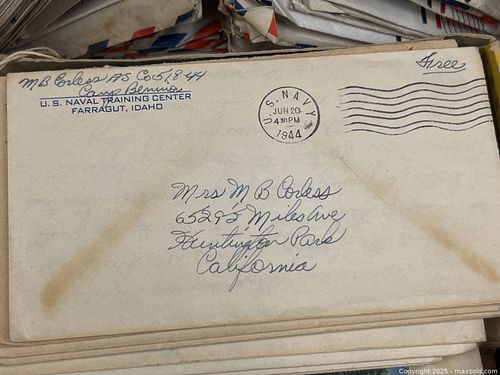 MB Corless AS Co 518-44
Camp Bennion
U. S. NAVAL TRAINING CENTER
FARRAGUT, IDAHO
Free
U.S. NAVY
JUN 20
4 30 PM
1944
Mrs M B Corless
6529 S Miles Ave
Huntington Park
California
Copyright 2025 - maxsold.com